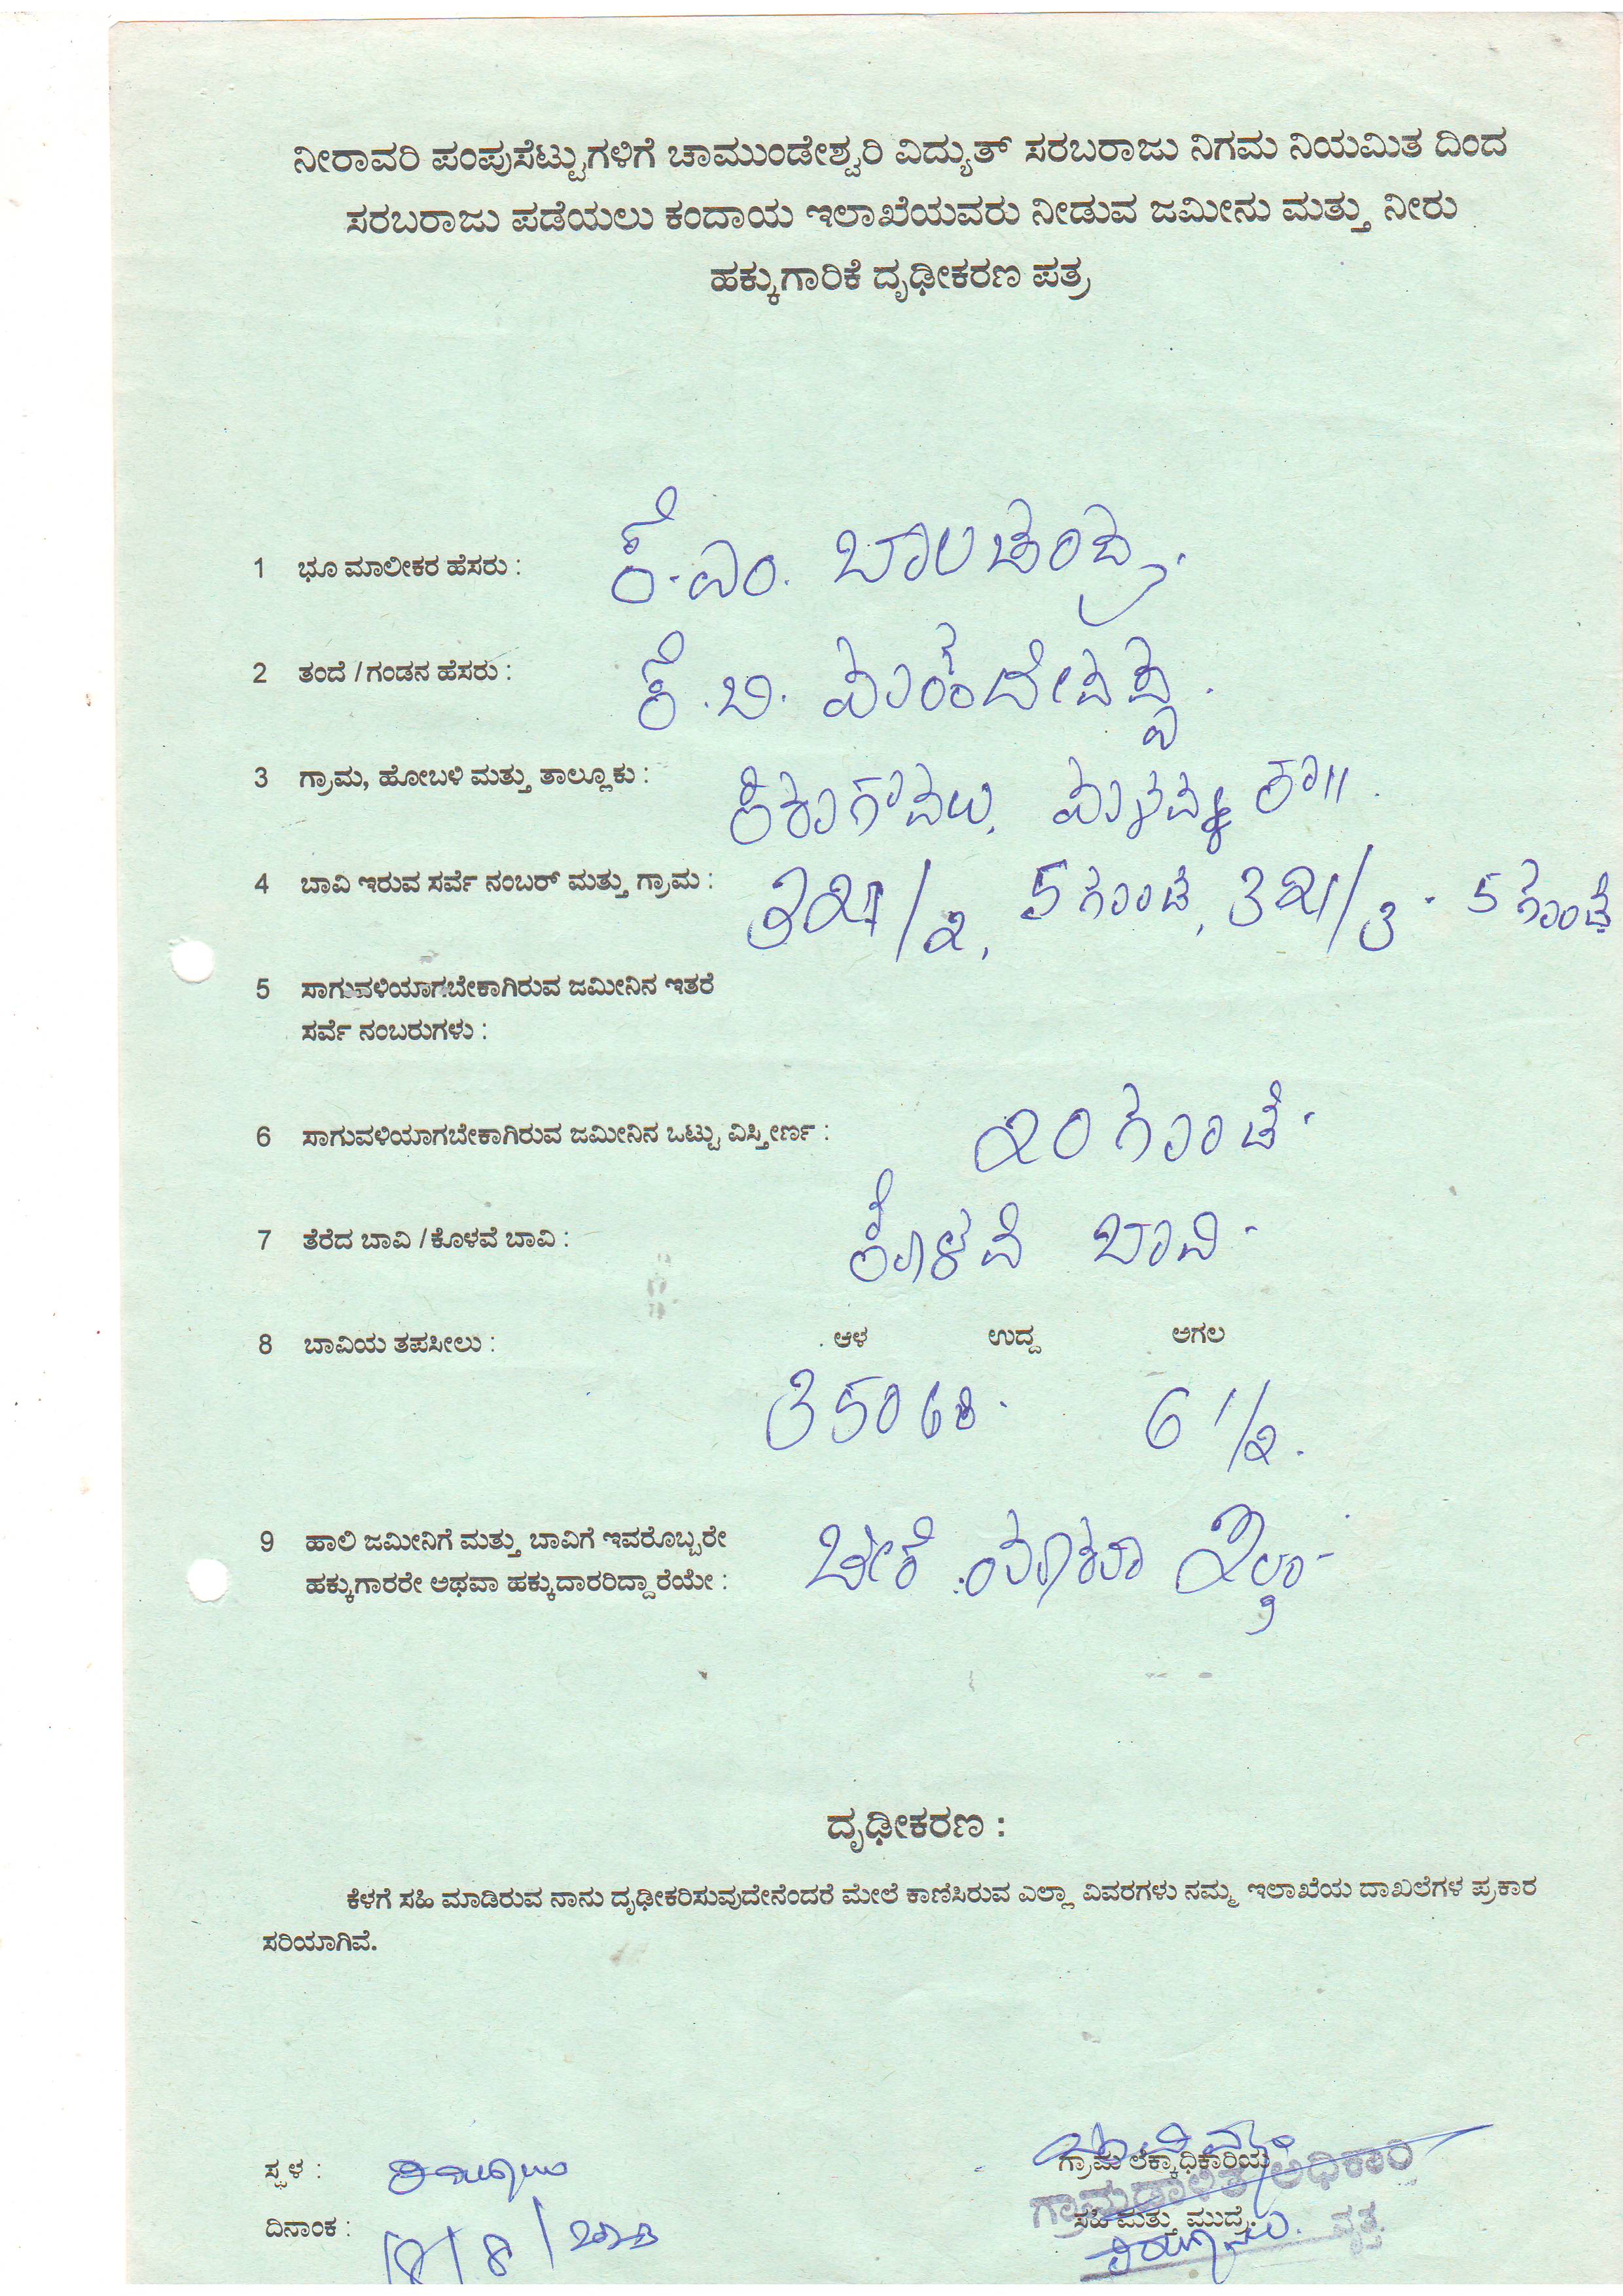 ನೀರಾವರಿ ಪಂಪುಸೆಟ್ಟುಗಳಿಗೆ ಚಾಮುಂಡೇಶ್ವರಿ ವಿದ್ಯುತ್ ಸರಬರಾಜು ನಿಗಮ ನಿಯಮಿತ ದಿಂದ
ಸರಬರಾಜು ಪಡೆಯಲು ಕಂದಾಯ ಇಲಾಖೆಯವರು ನೀಡುವ ಜಮೀನು ಮತ್ತು ನೀರು
ಹಕ್ಕುಗಾರಿಕೆ ದೃಢೀಕರಣ ಪತ್ರ
1 ಭೂ ಮಾಲೀಕರ ಹೆಸರು : ಕೆ.ಎಂ. ಬಾಲಚಂದ್ರ.
2 ತಂದೆ / ಗಂಡನ ಹೆಸರು : ಕೆ.ಬಿ.
3 ಗ್ರಾಮ, ಹೋಬಳಿ ಮತ್ತು ತಾಲ್ಲೂಕು :
4 ಬಾವಿ ಇರುವ ಸರ್ವೆ ನಂಬರ್ ಮತ್ತು ಗ್ರಾಮ : 321/2, 5 ಗುಂಟೆ, 321/3 - 5 ಗುಂಟೆ
5 ಸಾಗುವಳಿಯಾಗಬೇಕಾಗಿರುವ ಜಮೀನಿನ ಇತರೆ
ಸರ್ವೆ ನಂಬರುಗಳು :
6 ಸಾಗುವಳಿಯಾಗಬೇಕಾಗಿರುವ ಜಮೀನಿನ ಒಟ್ಟು ವಿಸ್ತೀರ್ಣ : 20 ಗುಂಟೆ.
7 ತೆರೆದ ಬಾವಿ / ಕೊಳವೆ ಬಾವಿ : ಕೊಳವೆ ಬಾವಿ.
8 ಬಾವಿಯ ತಪಸೀಲು : ಆಳ ಉದ್ದ ಅಗಲ
350 6 1/2.
9 ಹಾಲಿ ಜಮೀನಿಗೆ ಮತ್ತು ಬಾವಿಗೆ ಇವರೊಬ್ಬರೇ
ಹಕ್ಕುಗಾರರೇ ಅಥವಾ ಹಕ್ಕುದಾರರಿದ್ದಾರೆಯೇ : ಬೇರೆ ಯಾರೂ ಇಲ್ಲ.
ದೃಢೀಕರಣ :
ಕೆಳಗೆ ಸಹಿ ಮಾಡಿರುವ ನಾನು ದೃಢೀಕರಿಸುವುದೇನೆಂದರೆ ಮೇಲೆ ಕಾಣಿಸಿರುವ ಎಲ್ಲಾ ವಿವರಗಳು ನಮ್ಮ ಇಲಾಖೆಯ ದಾಖಲೆಗಳ ಪ್ರಕಾರ
ಸರಿಯಾಗಿವೆ.
ಸ್ಥಳ :
ಗ್ರಾಮ ಲೆಕ್ಕಾಧಿಕಾರಿಯ
ಗ್ರಾಮಾಡಳಿತ ಅಧಿಕಾರಿ
ದಿನಾಂಕ :
ಸಹಿ ಮತ್ತು ಮುದ್ರೆ.
ವೃತ್ತ.